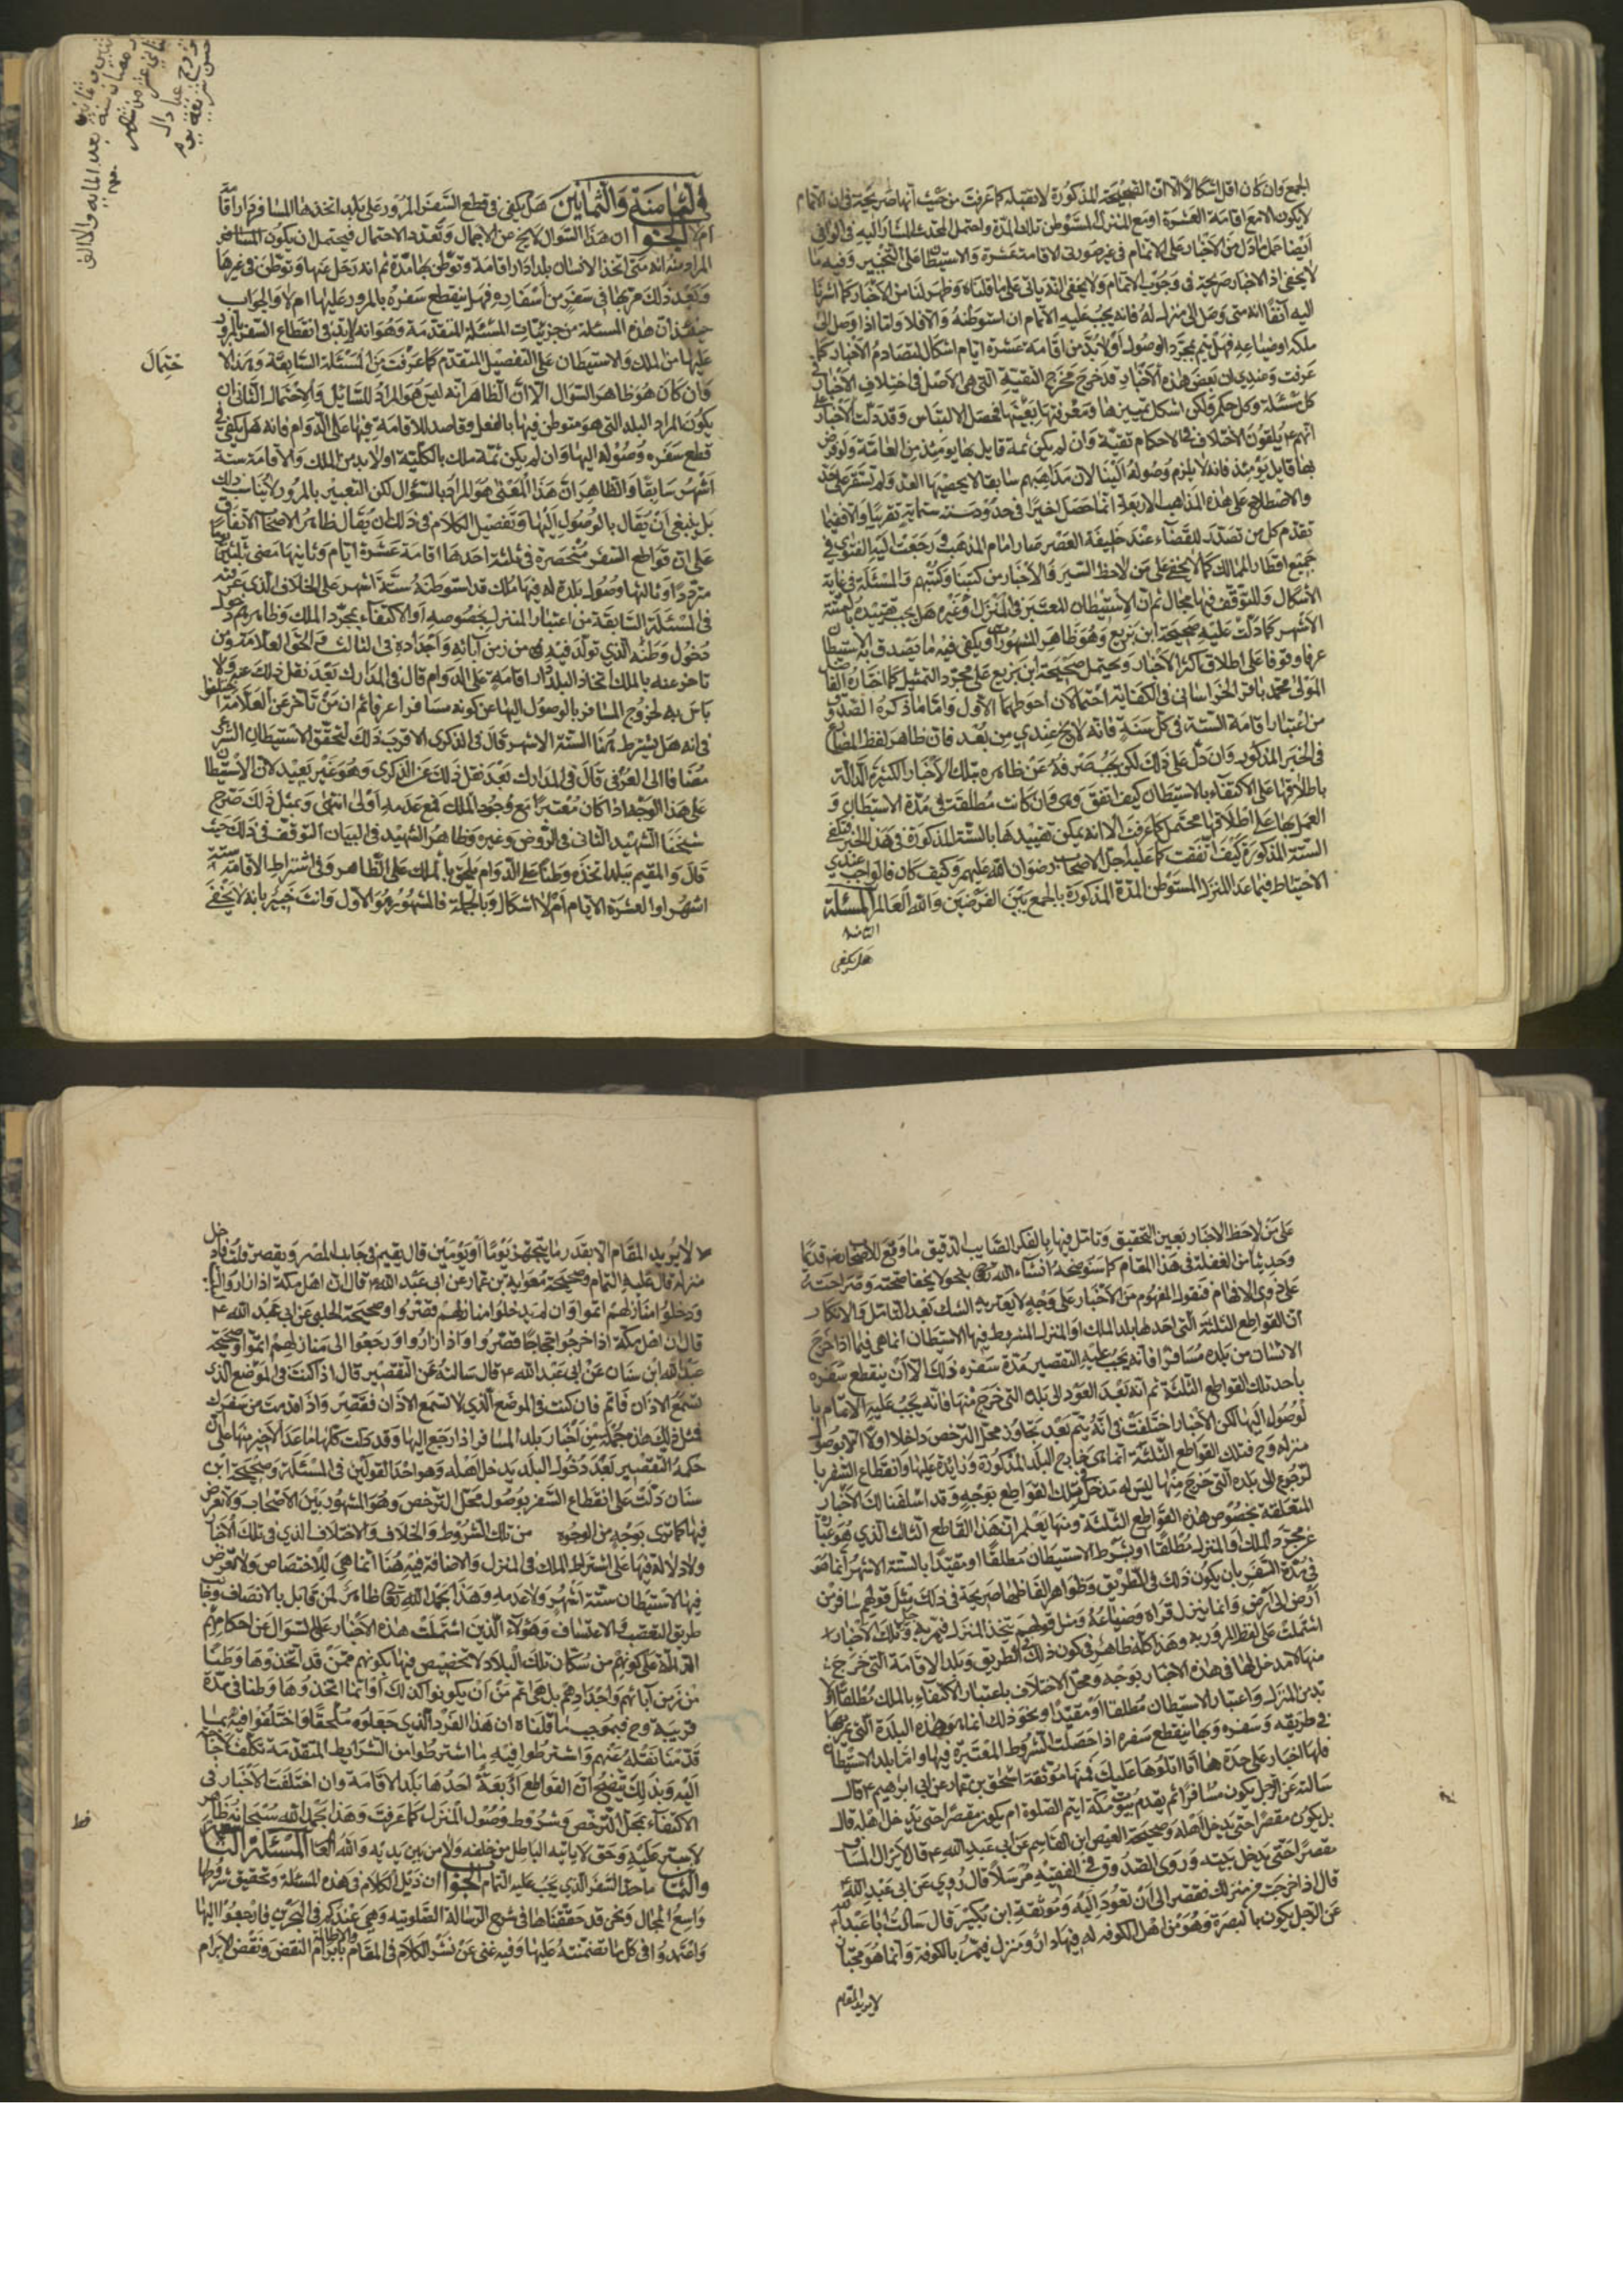 الجمع وان كان اقل اشكالا الا ان الصحيحة المذكورة لا تقبله كما عرفت من حيث انها صريحة في ان الاتمام
لا يكون الا مع اقامة العشرة او مع المنزل المستوطن تلك المدة واحتمل المحدث المشار اليه في الوافي
ايضا حمل ما دل من الاخبار على الاتمام في غير صورتي الاقامة عشرة والاستيطان على التخيير وفيه ما
لا يخفى اذ الاخبار صريحة في وجوب الاتمام ولا يخفى الذي ياتى على ما قلناه وظهر لنا من الاخبار كما اشرنا
اليه آنفا انه متى وصل الى منزل له فانه يجب عليه الاتمام ان استوطنه والا فلا واما اذا وصل الى
ملكه او ضياعه فهل يتم بمجرد الوصول او لابد من اقامة عشرة ايام اشكال لتصادم الاخبار كما
عرفت وعندي ان بعض هذه الاخبار قد خرج مخرج التقية التي هي الاصل في اختلاف الاخبار في
كل مسئلة وكل حكم ولكن اشكل تمييزها ومعرفتها بعينها فحصل الالتباس وقد دلت الاخبار على
انهم ع يلقون الاختلاف في الاحكام تقية وان لم يكن ثمة قايل بها يومئذ من العامة ولو فرض
بها قايل يومئذ فانه لا يلزم وصوله الينا لان مذاهبهم سابقا لا يحصيها العد ولم تستقر على حد
والاصطلاح على هذه المذاهب الاربعة انما حصل اخيرا في حدود سنة ستماية تقريبا والا ففيما
تقدم كل من تصدر للقضاء عند خليفة العصر صار امام المذهب ورجعت اليه الفتوى في
جميع اقطار الممالك كما لا يخفى على من لاحظ السير والاخبار من كتبنا وكتبهم والمسئلة في غاية
الاشكال وللتوقف فيها مجال ثم ان الاستيطان المعتبر في المنزل او غيره هل يجب تقييده بالستة
الاشهر كما دلت عليه صحيحة ابن بزيع وهو ظاهر المشهور او يكفي فيه ما يصدق به الاستيطان
عرفا وقوفا على اطلاق اكثر الاخبار ويحتمل صحيحة ابن بزيع على مجرد التمثيل كما اختاره الفاضل
المولى محمد باقر الخراساني في الكفاية احتمالان احوطهما الاول واما ما ذكره الصدوق
من اعتبار اقامة الستة في كل سنة فانه لا يخ عندي من بعد فان ظاهر لفظ المضارع
في الخبر المذكور وان دل على ذلك لكن يجب صرفه عن ظاهره بتلك الاخبار الكثيرة الدالة
باطلاقها على الاكتفاء بالاستيطان كيف اتفق وهي وان كانت مطلقة في مدة الاستيطان و
العمل بها على اطلاقها محتمل كما عرفت الا انه يمكن تقييدها بالستة المذكورة في هذا الخبر فتكفي
الستة المذكورة كيف اتفقت كما عليه جل الاصحاب رضوان الله عليهم وكيف كان فالواجب عندي
الاحتياط فيما عدا المنزل المستوطن المدة المذكورة بالجمع بين الفرضين والله العالم المسئلة
الثامنة
هل يكفي
الثامنة والثمانين هل يكفي في قطع السفر المرور على بلد اتخذها المسافر دار اقامة
ام لا الجواب ان هذا السؤال لا يخ من الاجمال وتعدد الاحتمال فيحتمل ان يكون المسافر
المراد منه انه متى اتخذ الانسان بلدا دار اقامة وتوطن بها مدة ثم انه رحل عنها وتوطن في غيرها
وبعد ذلك مر بها في سفر من اسفاره فهل ينقطع سفره بالمرور عليها ام لا والجواب
حينئذ ان هذه المسئلة من جزئيات المسئلة المتقدمة وهو انه لابد في انقطاع السفر بالمرور
عليها من الملك والاستيطان على التفصيل المتقدم كما عرفت من المسئلة السابقة وهذا الا
حتمال
وان كان هو ظاهر السؤال الا ان الظاهر انه ليس هو المراد للسايل والاحتمال الثاني ان
يكون المراد البلد التي هو متوطن فيها بالفعل وقاصد للاقامة فيها على الدوام فانه هل يكفي في
قطع سفره وصوله اليها وان لم يكن ثمة ملك بالكلية او لابد من الملك والاقامة ستة
اشهر سابقا والظاهر ان هذا المعنى هو المراد بالسؤال لكن التعبير بالمرور لا يناسب ذلك
بل ينبغي ان يقال بالوصول اليها وتفصيل الكلام في ذلك ان يقال ظاهر الاصحاب الاتفاق
على ان قواطع السفر منحصرة في ثلثة احدها اقامة عشرة ايام وثانيها مضى ثلثين يوما
مترددا وثالثها وصول بلدة له فيها ملك قد استوطنه ستة اشهر على الخلاف الذي عرفته
في المسئلة السابقة من اعتبار المنزل بخصوصه او الاكتفاء بمجرد الملك وظاهرهم دخول
دخول وطنه الذي تولد فيه هو من زمن آبائه واجداده في الثالث والحق العلامة ومن
تاخر عنه بالملك اتخاذ البلد دار اقامة على الدوام قال في المدارك بعد نقل ذلك عنهم ولا
باس به لخروج المسافر بالوصول اليها عن كونه مسافرا عرفا ثم ان من تاخر عن العلامة اختلفوا
في انه هل يشترط هنا الستة الاشهر قال في الذكرى الاقرب ذلك لتحقق الاستيطان الشرعي
مضافا الى العرفي قال في المدارك بعد نقل ذلك عن الذكرى وهو غير بعيد لان الاستيطان
على هذا الوجه اذا كان معتبرا مع وجود الملك فمع عدمه اولى انتهى وبمثل ذلك صرح
شيخنا الشهيد الثاني في الروض وغيره وظاهر الشهيد في البيان التوقف في ذلك حيث
قال والمقيم ببلد اتخذه وطنا على الدوام يلحق بالملك على الظاهر وفي اشتراط الاقامة ستة
اشهر او العشرة الايام ام لا اشكال وبالجملة فالمشهور هو الاول وانت خبير بانه لا يخفى
على من لاحظ الاخبار بعين التحقيق وتامل فيها بالفكر الصايب الدقيق ما وقع للاصحاب رض قديما
وحديثا من الغفلة في هذا المقام كما سنوضحه انشاء الله تع بنحو لا يخفا صحته وصراحته
على ذوى الافهام فنقول المفهوم من الاخبار على وجه لا يعتريه الشك بعد التامل والانكار
ان القواطع الثلثة التي احدها بلد الملك او المنزل المشروط فيها الاستيطان انما هي فيما اذا خرج
الانسان من بلده مسافرا فانه يجب عليه التقصير مدة سفره ذلك الا ان ينقطع سفره
باحد تلك القواطع الثلثة ثم انه بعد العود الى بلده التي خرج منها فانه يجب عليه الاتمام با
لوصول اليها لكن الاخبار اختلفت في انه يتم بعد تجاوز محل الترخص داخلا او لا الا بوصول
منزله وح فتلك القواطع الثلثة انما هي خارج البلد المذكورة وزايدة عليها وانقطاع السفر با
لرجوع الى بلده التي خرج منها ليس له مدخل في تلك القواطع بوجه وقد اسلفنا لك الاخبار
المتعلقة بخصوص هذه القواطع الثلثة ومنها يعلم ان هذا القاطع الثالث الذي هو عبارة
عن مجرد الملك والمنزل مطلقا او بشرط الاستيطان مطلقا او مقيدا بالستة الاشهر انما هو
في مدة السفر بان يكون ذلك في الطريق وظواهر الفاظها صريحة في ذلك مثل قولهم سافر من
ارض الى ارض وانما ينزل قراه وضياعه ومثل قولهم يتخذ المنزل فيمر به وتلك الاخبار
اشتملت على لفظ المرور به وهذا كله ظاهر في كون ذلك في الطريق وبلد الاقامة التي خرج
منها لا مدخل لها في هذه الاخبار بوجه ومحل الاختلاف باعتبار الاكتفاء بالملك مطلقا او لا
بد من المنزل واعتبار الاستيطان مطلقا او مقيدا ونحو ذلك انما هو هذه البلدة التي يمر بها
في طريقه وسفره وبها ينقطع سفره اذا حصلت الشروط المعتبرة فيها واما بلد الاستيطان
فلها اخبار على حدة ها انا اتلوها عليك فمنها موثقة اسحق بن عمار عن ابي ابراهيم ع قال
سالته عن الرجل يكون مسافرا ثم يقدم بيوت مكة ايتم الصلوة ام يكون مقصرا حتى يدخل اهله قال
بل يكون مقصرا حتى يدخل اهله وصحيحة العيص ابن القاسم عن ابي عبد الله ع قال لا يزال المسافر
مقصرا حتى يدخل بيته وروى الصدوق في الفقيه مرسلا قال روى عن ابي عبد الله ع
قال اذا خرجت من منزلك فقصر الى ان تعود اليه وموثقة ابن بكير قال سالت ابا عبد الله ع
عن الرجل يكون بالبصرة وهو من اهل الكوفه له فيها دار ومنزل فيمر بالكوفة وانما هو مجتاز
لا يريد المقام
لا يريد المقام الا بقدر ما يتجهز يوما او يومين قال يقيم في جانب المصر ويقصر قلت فان دخل
منزله قال عليه التمام وصحيحة معوية بن عمار عن ابي عبد الله ع قال ان اهل مكة اذا زاروا البيت
ودخلوا منازلهم اتموا وان لم يدخلوا منازلهم قصروا وصحيحة الحلبي عن ابي عبد الله ع
قال ان اهل مكة اذا خرجوا حجاجا قصروا واذا زاروا ورجعوا الى منازلهم اتموا وصحيحة
عبد الله ابن سنان عن ابي عبد الله ع قال سالته عن التقصير قال اذا كنت في الموضع الذي
تسمع الاذان فاتم فان كنت في الموضع الذي لا تسمع الاذان فقصر واذا قدمت من سفرك
فمثل ذلك هذه جملة من اخبار بلد المسافر اذا رجع اليها وقد دلت كلها ما عدا الاخير منها على ان
حكمه التقصير بعد دخول البلد يدخل اهله وهو احد القولين في المسئلة وصحيحة ابن
سنان دلت على انقطاع السفر بوصول محل الترخص وهو المشهور بين الاصحاب ولا تعرض
فيها كما ترى بوجه من الوجوه من تلك الشروط والخلاف والاختلاف الذي في تلك الاخبار
ولا دلالة فيها على اشتراط الملك في المنزل والاضافة فيه هنا انما هي للاختصاص ولا تعرض
فيها لاستيطان ستة اشهر ولا عدمه وهذا بحمد الله تع ظاهر لمن قابل بالانصاف وجانب
طريق التعصب والاعتساف وهؤلاء الذين اشتملت هذه الاخبار على السؤال عن احكامهم
الدالة على كونهم من سكان تلك البلاد لا تخصيص فيها بكونهم ممن قد اتخذوها وطنا
من زمن آبائهم واجدادهم بل هي اعم من ان يكونوا كذلك او انما اتخذوها وطنا في مدة
قريبة وح فبموجب ما قلناه ان هذا الفرد الذي جعلوه ملحقا واختلفوا فيه بما
قدمنا نقله عنهم واشترطوا فيه ما اشترطوا من الشرايط المتقدمة تكلف لا حاجة
اليه وبذلك يتضح ان القواطع اربعة احدها بلد الاقامة وان اختلفت الاخبار في
الاكتفاء بمحل الترخص وشروط وصول المنزل كما عرفت وهذا بحمد الله سبحانه ظاهر
لا ستر عليه وحق لا ياتيه الباطل من خلفه ولا من بين يديه والله العالم المسئلة التاسعة
والثمانون ما حق السفر الذي يجب عليه التمام الجواب ان ذيل الكلام في هذه المسئلة وتحقيق شروطها
واسع المجال ونحن قد حققناها في شرح الرسالة الصلوتيه وهي عندكم في البحرين فارجعوا اليها
واعتمدوا في كل ما تضمنته عليها وفيه غنى عن نشر الكلام في المقام والاطالة بابرام النقض ونقض الابرام